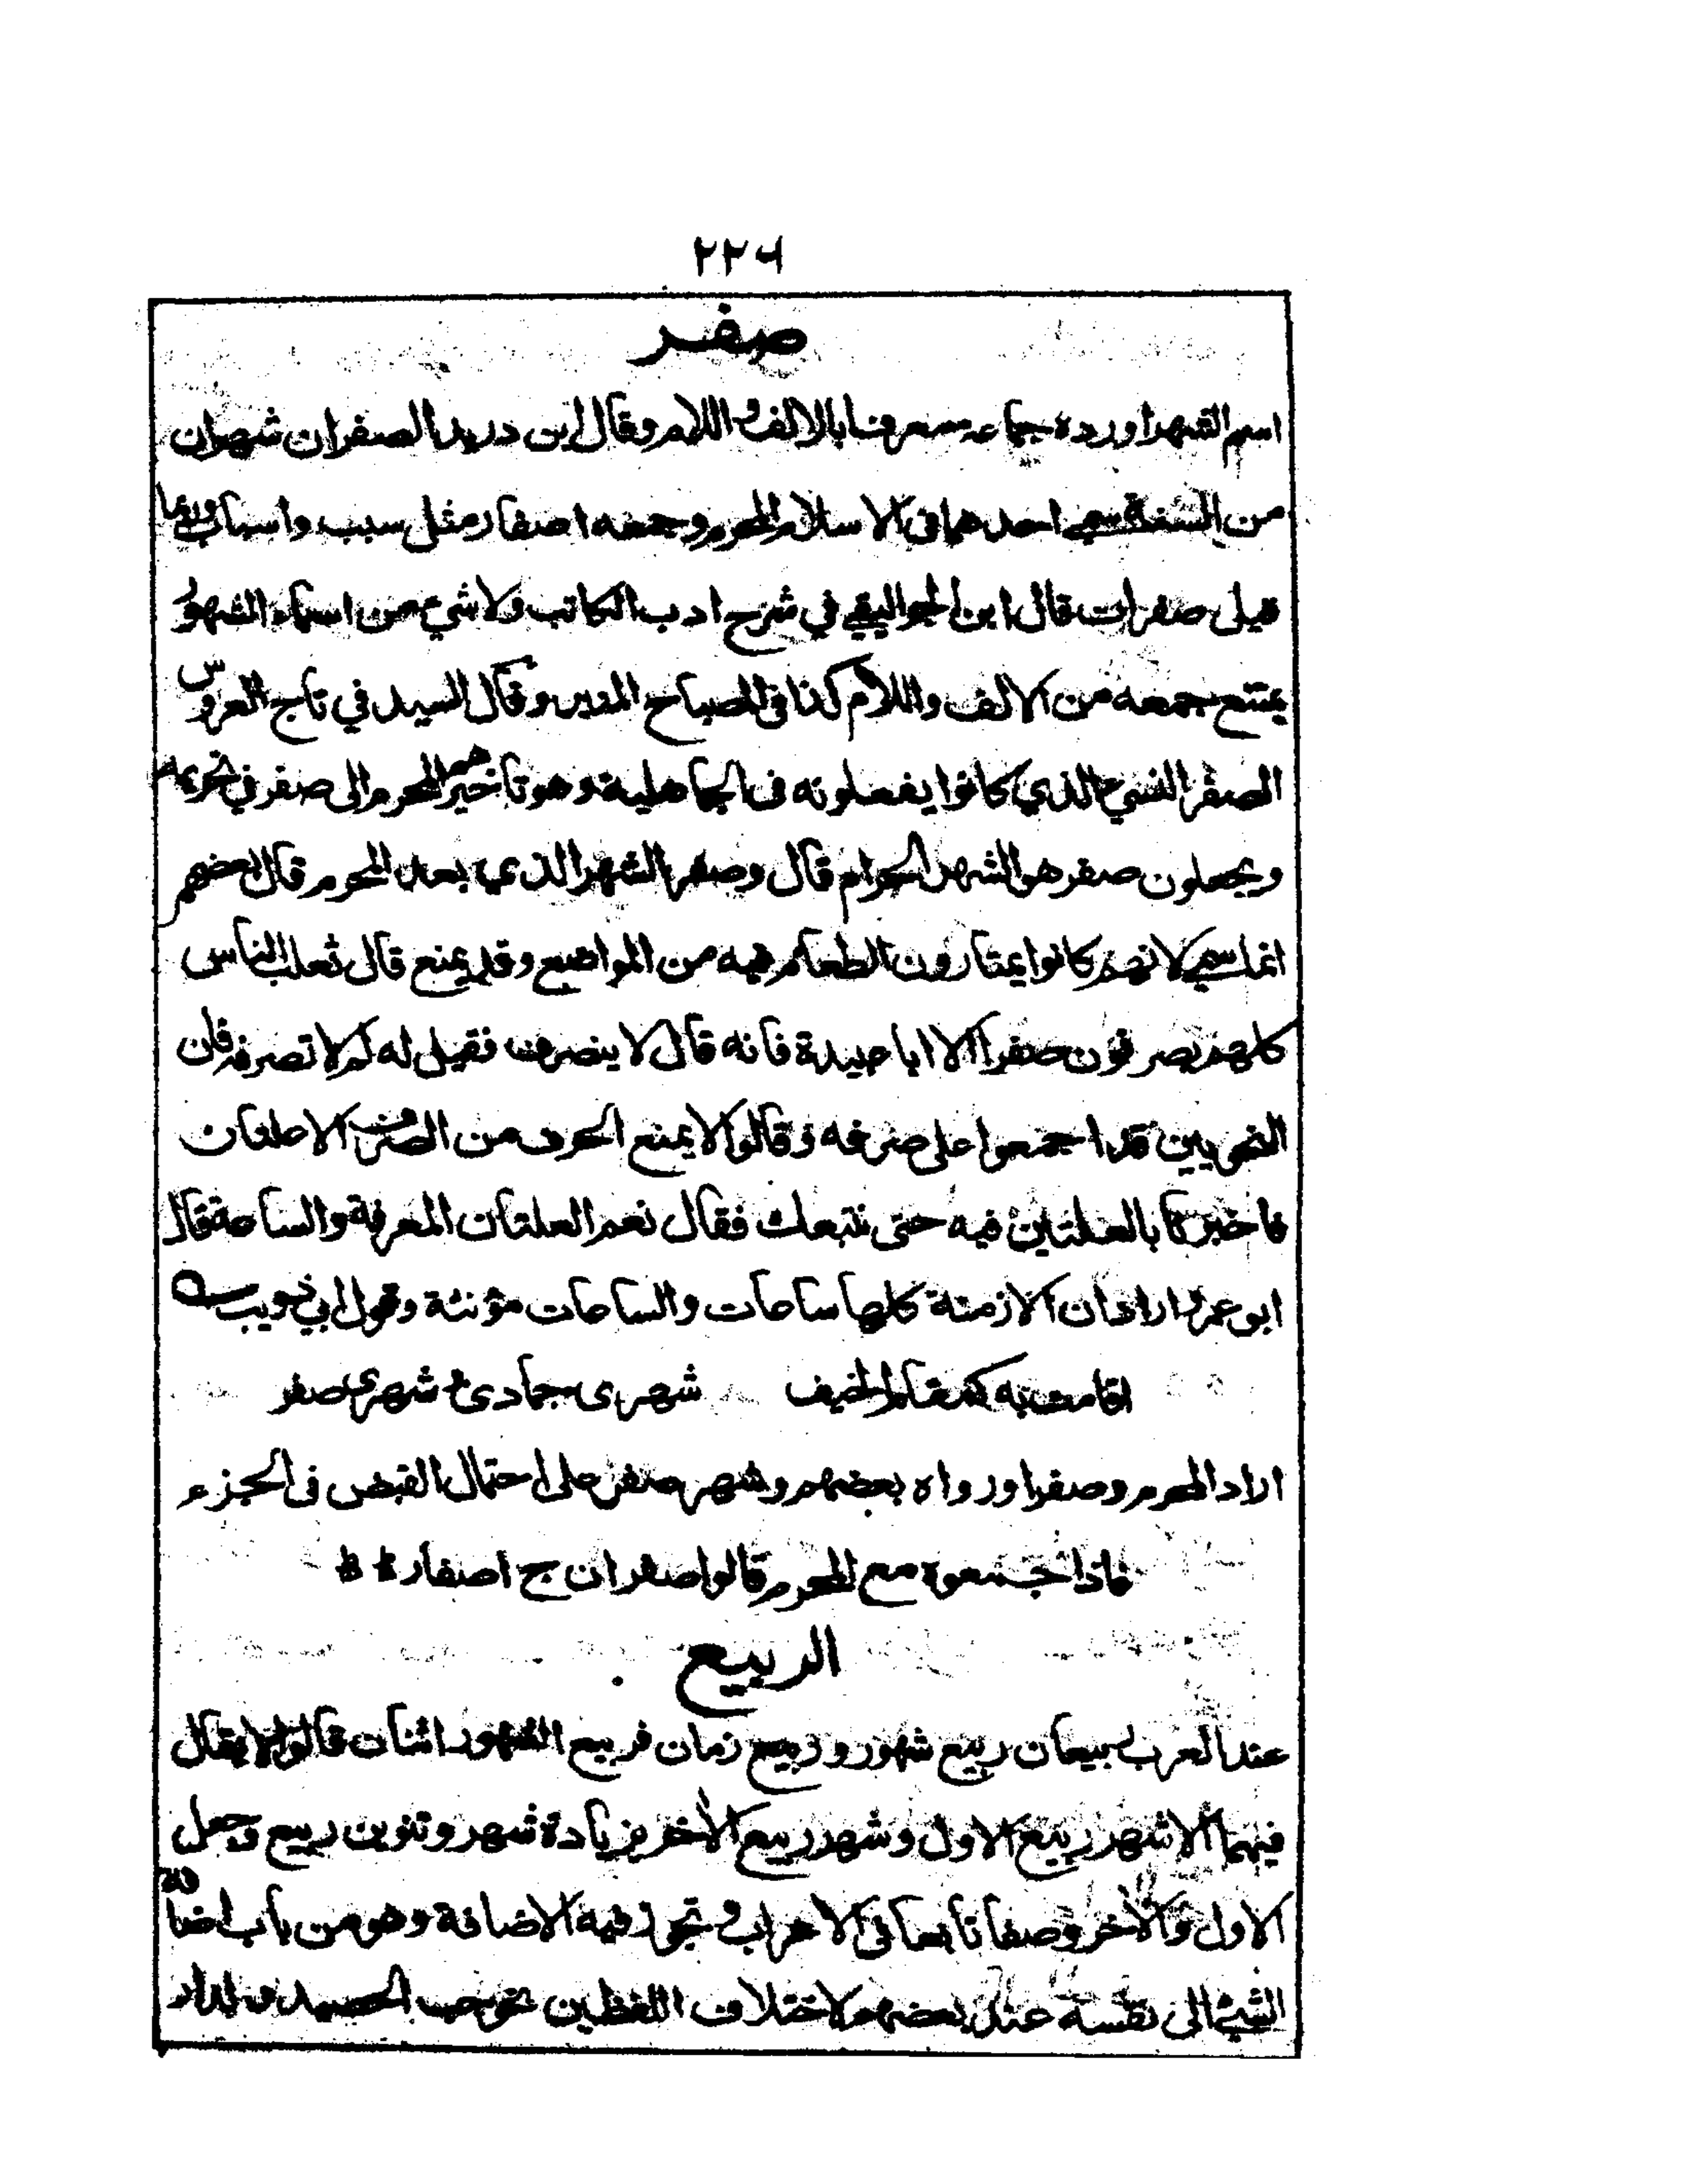 ٢٢٦
صفر
اسم الشهر اورده جماعه معرفا بالالف واللام وقال ابن دريد الصفران شهران
من السنة سمي احدهما فى الاسلام المحرم وجمعه اصفار مثل سبب واسباب وربما
قيل صفرات قال ابن الجواليقي في شرح ادب الكاتب ولا شيء من اسماء الشهور
يمتنع جمعه من الالف واللام كذا فى المصباح المنير وقال السيد في تاج العروس
الصفر النسيء الذي كانوا يفعلونه فى الجاهلية وهو تاخيرهم المحرم الى صفر في تحريمه
ويجعلون صفر هو الشهر الحرام قال وصفر الشهر الذي بعد المحرم قال بعضهم
انما سمي لانهم كانوا يمتارون الطعام فيه من المواضع وقد يمنع قال ثعلب الناس
كلهم يصرفون صفرا الا ابا عبيدة فانه قال لا ينصرف فقيل له لم لا تصرفه فان
النحويين قد اجمعوا على صرفه وقالوا لا يمنع الحرف من الصرف الا علتان
فاخبرنا بالعلتين فيه حتى نتبعك فقال نعم العلتان المعرفة والساعة قال
ابو عمر اراد ان الازمنة كلها ساعات والساعات مؤنثة وقول ابي ذويب
اقامت به كمقام الحنيف شهرى جمادى و شهرى صفر
اراد المحرم وصفرا ورواه بعضهم وشهر صفر على احتمال القبض فى الجزء
فاذا جمعوه مع المحرم قالوا صفران ج اصفار
الربيع
عند العرب ربيعان ربيع شهور وربيع زمان فربيع الشهور اثنان قالوا لا يقال
فيهما الا شهر ربيع الاول وشهر ربيع الآخر بزيادة شهر وتنوين ربيع وجعل
الاول والآخر وصفا تابعا فى الاعراب و تجوز فيه الاضافة وهو من باب اضافة
الشيء الى نفسه عند بعضهم لاختلاف اللفظين نحو حب الحصيد و لدار